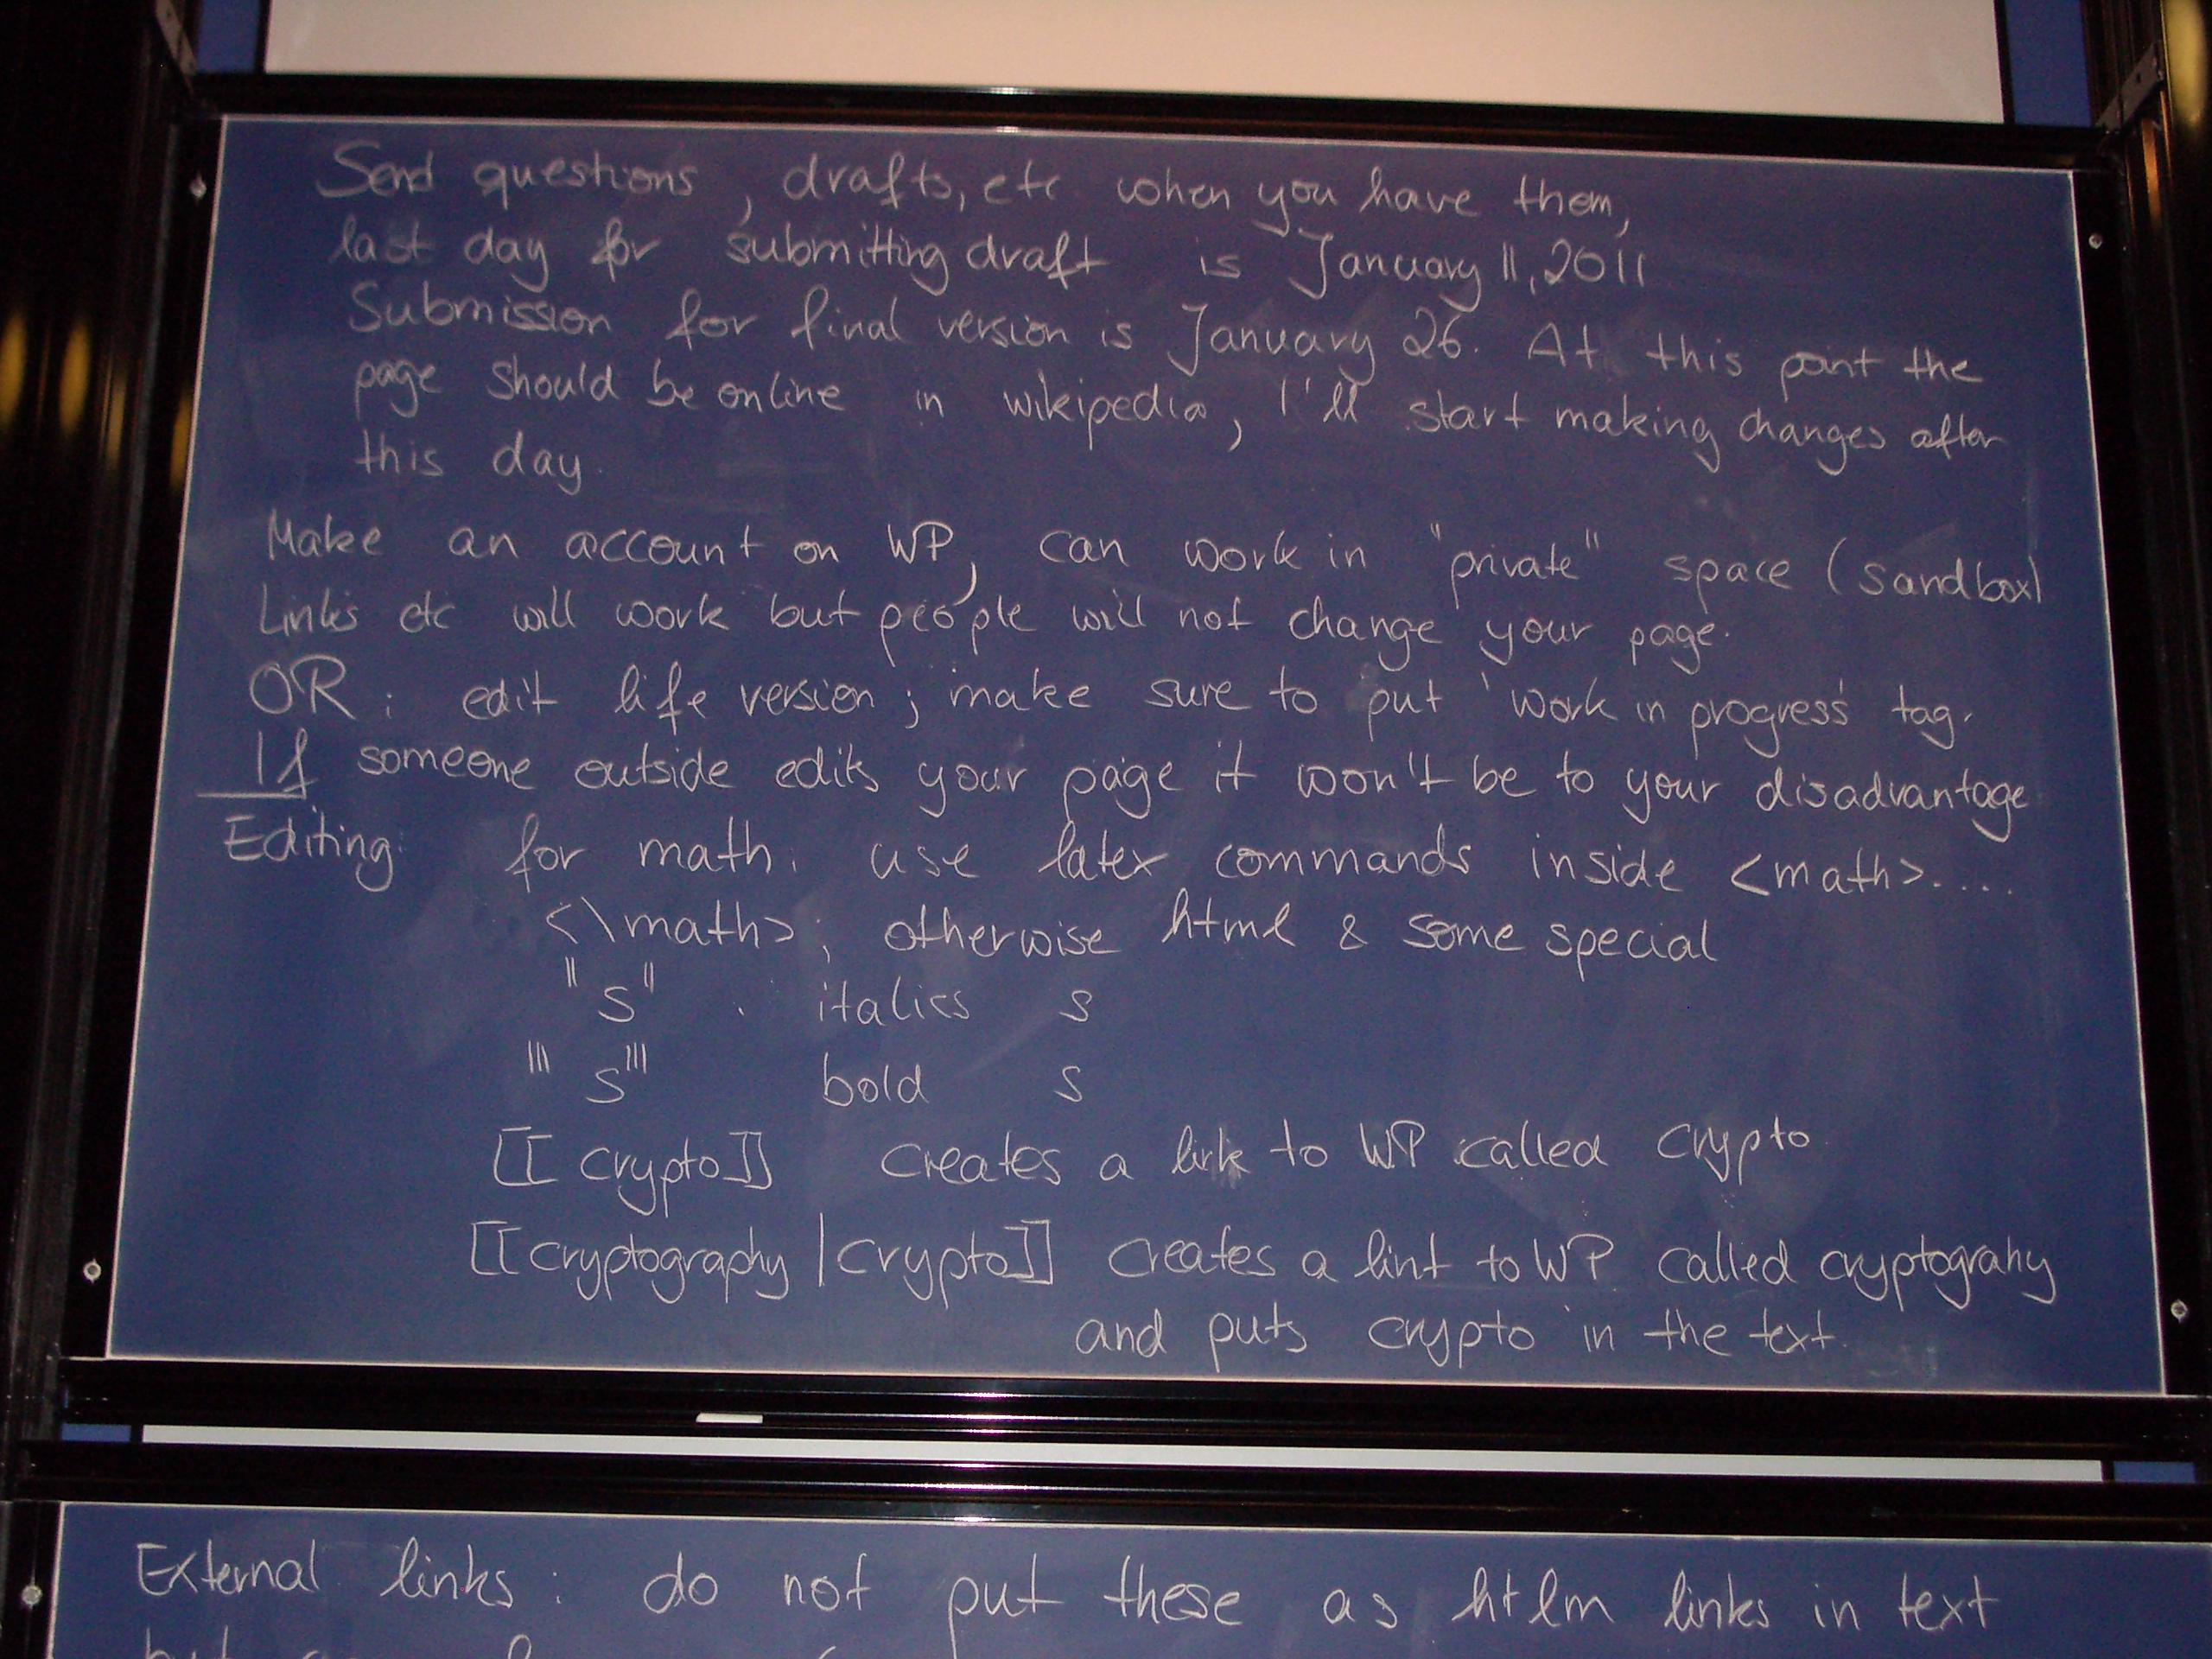 Send questions, drafts, etc when you have them,
last day for submitting draft is January 11, 2011
Submission for final version is January 26. At this point the
page should be online in wikipedia, I'll start making changes after
this day.
Make an account on WP, can work in "private" space (sandbox)
Links etc will work but people will not change your page.
OR: edit life version; make sure to put 'work in progress' tag.
If someone outside edits your page it won't be to your disadvantage
Editing: for math: use latex commands inside <math>.....
<\math>; otherwise html & some special
''s'' italics s
'''s''' bold s
[[crypto]] creates a link to WP called crypto
[[cryptography|crypto]] creates a lint to WP called cryptograhy
and puts crypto in the text.
External links: do not put these as htlm links in text